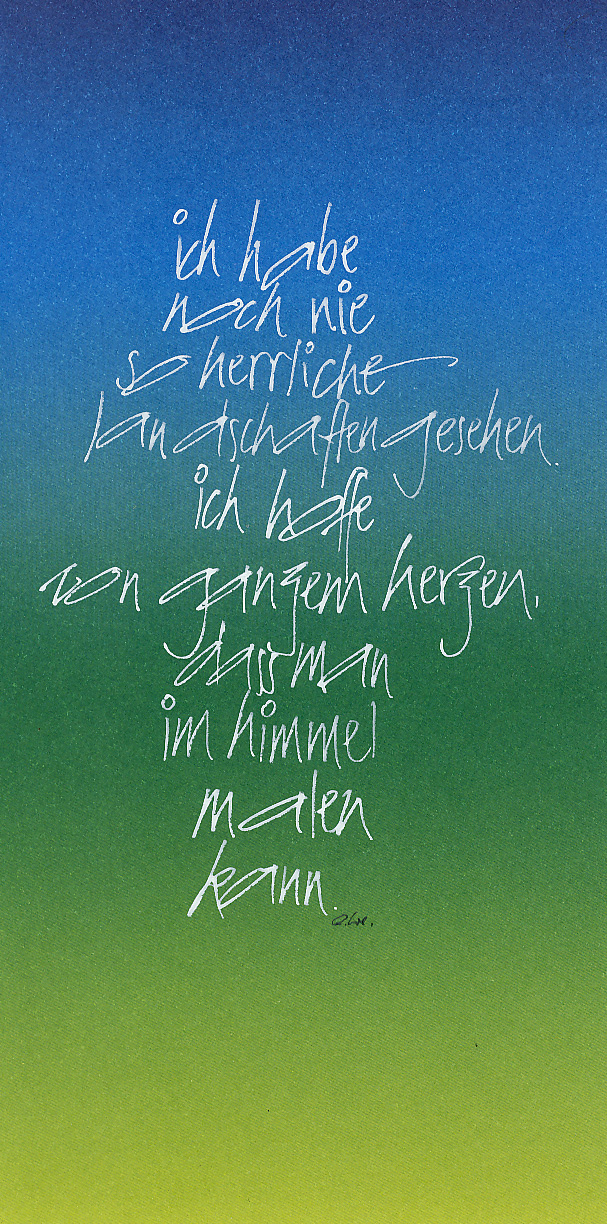 ich habe
noch nie
so herrliche
landschaften gesehen.
ich hoffe
von ganzem herzen,
dass man
im himmel
malen
kann.